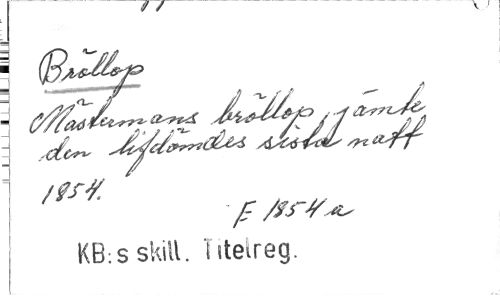 Bröllop
Mästermans bröllop, jämte
den lifdömdes sista natt
1854.
E 1854 a
KB:s skill. Titelreg.